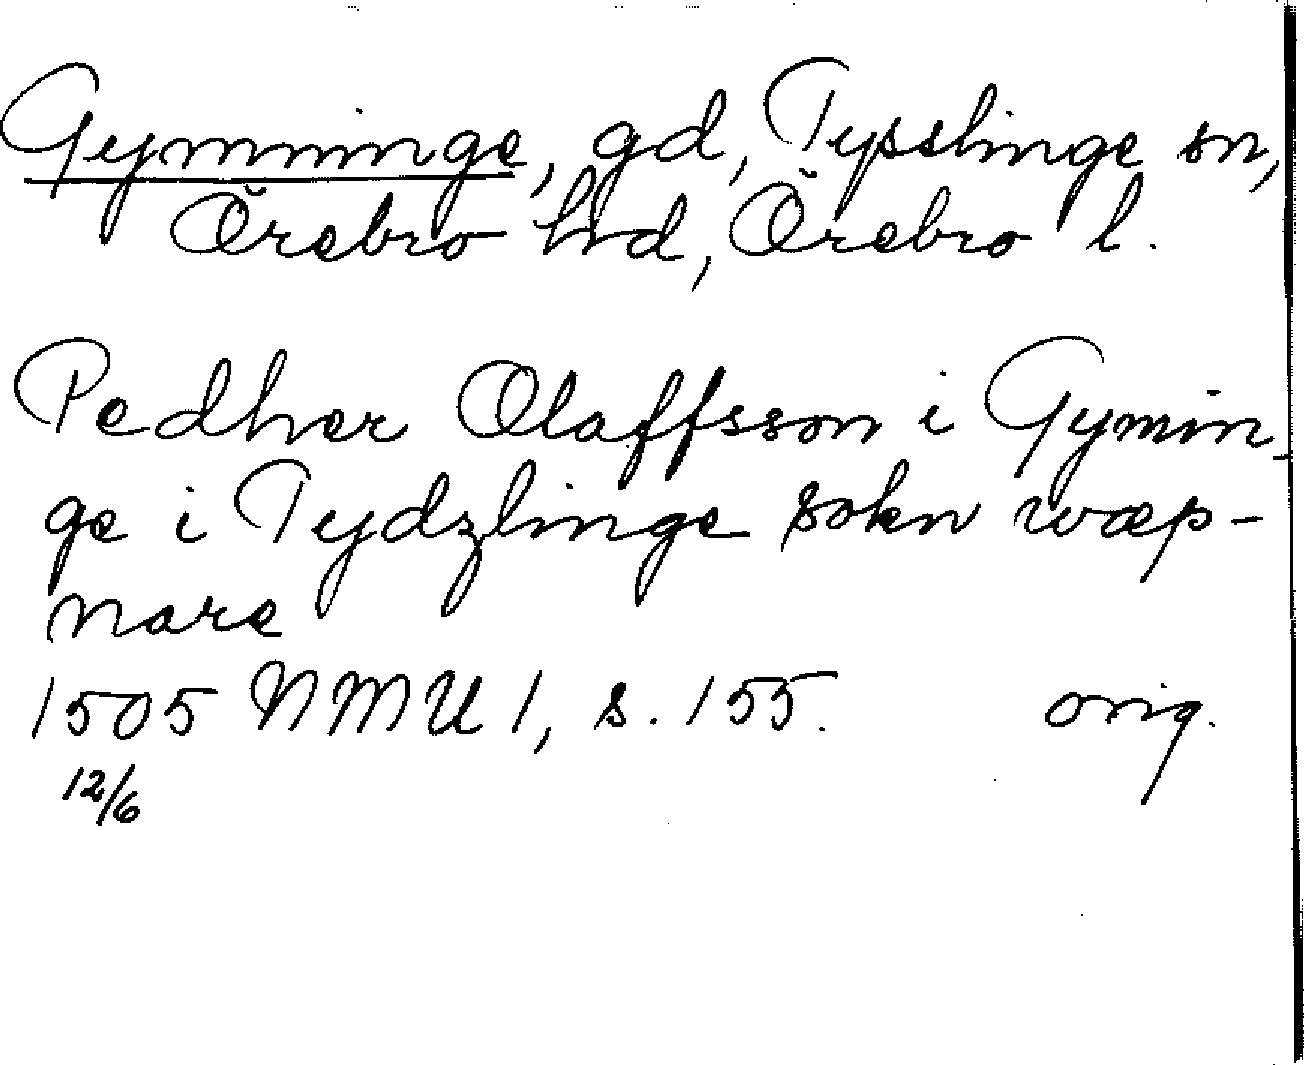 Gymninge, gd, Tysslinge sn,
Örebro hd, Örebro l.
Pedher Olaffsson i Gymin-
ge i Tydzlinge sokn wæp-
nare
1505 NMU 1, s. 155. orig.
12/6